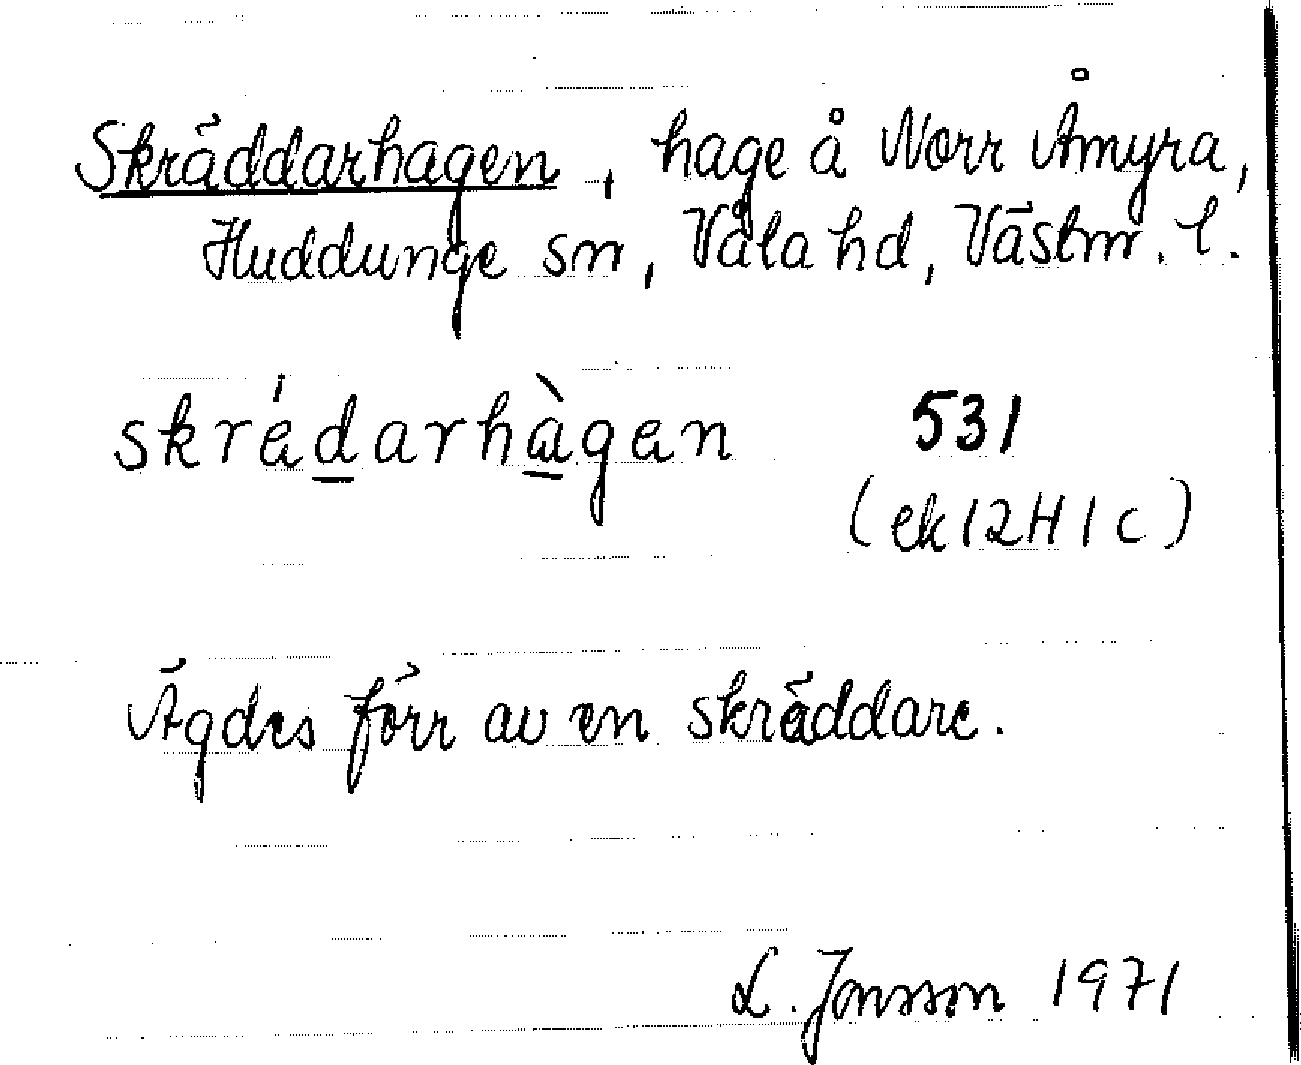 Skräddarhagen, hage å Norr Åmyra,
Huddunge sn, Våla hd, Västm. l.
skrédarhàgen 531
(ek 12H1c)
Ägdes förr av en skräddare.
L. Jonsson 1971